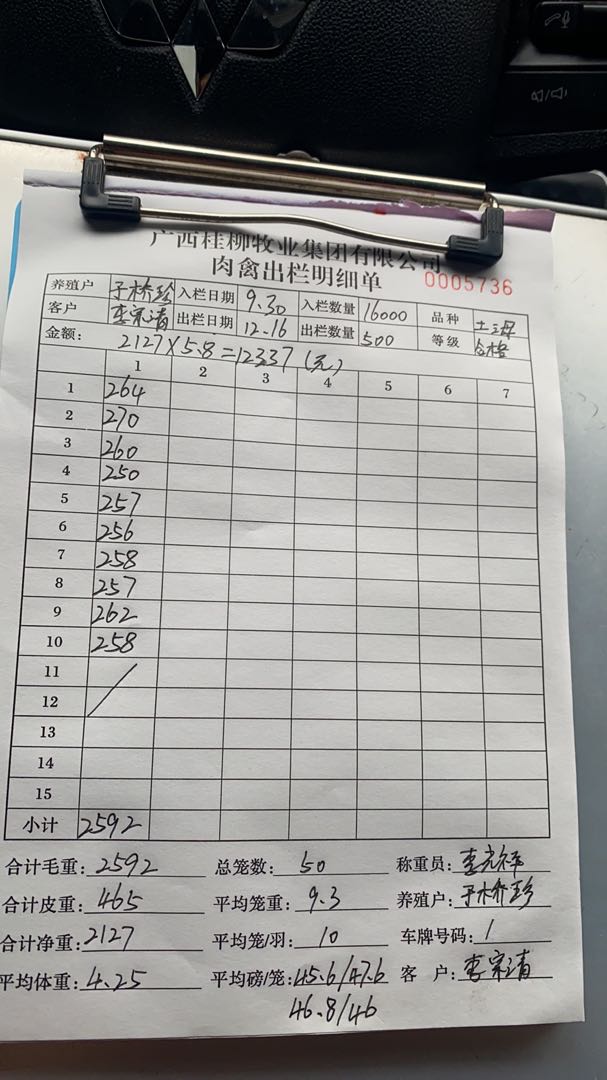 广西桂柳牧业集团有限公司
肉禽出栏明细单 0005736
养殖户 于桥珍 入栏日期 9.30 入栏数量 16000 品种 土二母
客户 李宗清 出栏日期 12.16 出栏数量 500 等级 合格
金额: 2127×5.8=12337(元)
1 2 3 4 5 6 7
1 264
2 270
3 260
4 250
5 257
6 256
7 258
8 257
9 262
10 258
11 /
12
13
14
15
小计 2592
合计毛重: 2592 总笼数: 50 称重员: 李光祥
合计皮重: 465 平均笼重: 9.3 养殖户: 于桥珍
合计净重: 2127 平均笼/羽: 10 车牌号码: /
平均体重: 4.25 平均磅/笼: 45.6/47.6 客 户: 李宗清
46.8/46